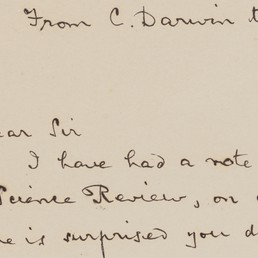 From C. Darwin t
ear Sir
I have had a note
Science Review, on
e is surprised you d